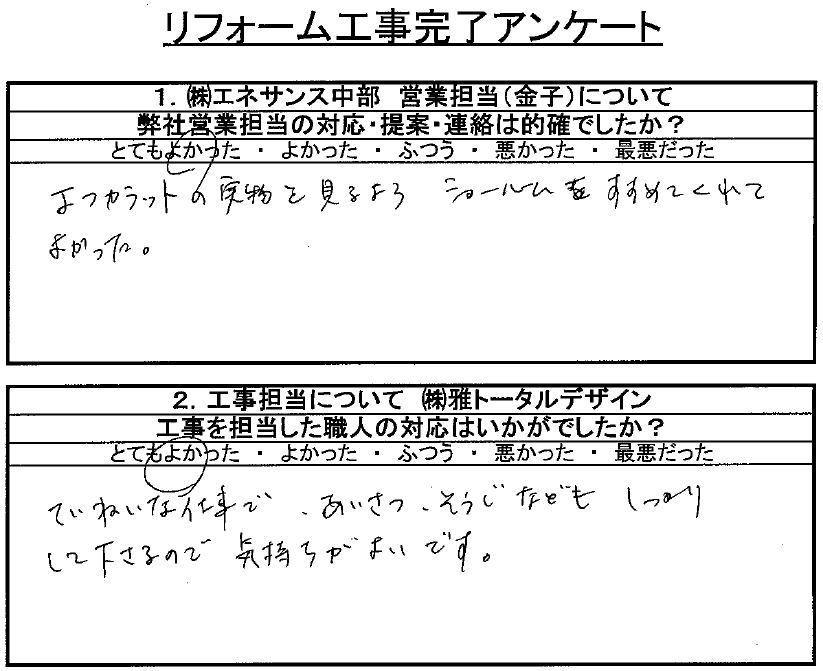 リフォーム工事完了アンケート
1．㈱エネサンス中部　営業担当（金子）について
弊社営業担当の対応・提案・連絡は的確でしたか？
とてもよかった ・ よかった ・ ふつう ・ 悪かった ・ 最悪だった
エコカラットの実物を見るよう ショールームをすすめてくれて
よかった。
2．工事担当について　㈱雅トータルデザイン
工事を担当した職人の対応はいかがでしたか？
とてもよかった ・ よかった ・ ふつう ・ 悪かった ・ 最悪だった
ていねいな仕事で、あいさつ、そうじなども しっかり
して下さるので 気持ちがよいです。